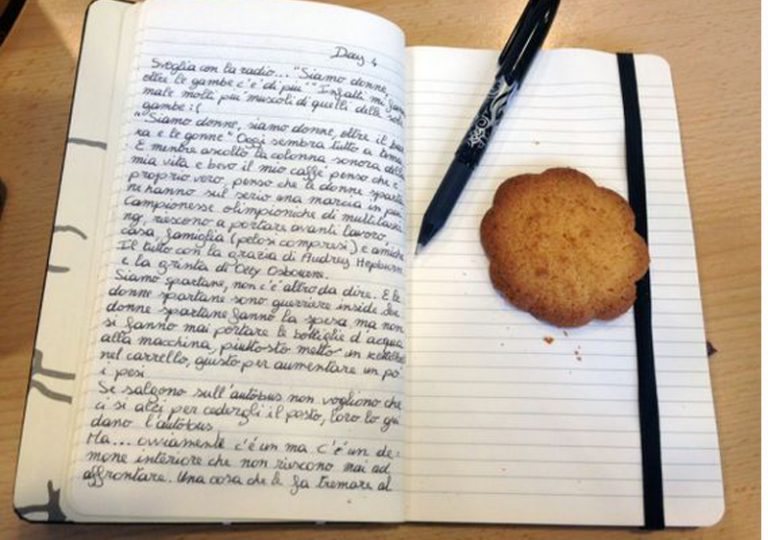 Day 4
Sveglia con la radio... "Siamo donne,
oltre le gambe c'è di più" Infatti mi fanno
male molti più muscoli di quelli delle sole
gambe :(
"Siamo donne, siamo donne, oltre il
ra e le gonne" Oggi sembra tutto a tema.
E mentre ascolto la colonna sonora della
mia vita e bevo il mio caffè penso che è
proprio vero, penso che le donne sparta
ne hanno sul serio una marcia in più
Campionesse olimpioniche di multitaski
ng, riescono a portare avanti lavoro,
casa, famiglia (pelosi compresi) e amiche
Il tutto con la grazia di Audrey Hepburn
e la grinta di Ozzy Osbourne.
Siamo spartane, non c'è altro da dire. E le
donne spartane sono guerriere inside. Le
donne spartane fanno la spesa ma non
si fanno mai portare le bottiglie d'acqua
alla macchina, piuttosto metto un kettlebell
nel carrello, giusto per aumentare un po'
i pesi.
Se salgono sull'autobus non vogliono che
ci si alzi per cedergli il posto, loro lo gui
dano l'autobus.
Ma... ovviamente c'è un ma c'è un de=
mone interiore che non riescono mai ad
affrontare. Una cosa che le fa tremare al